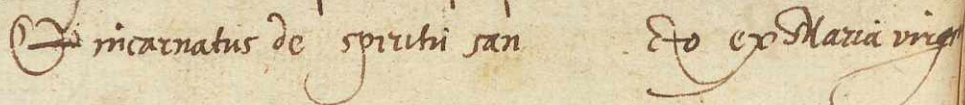 Et incarnatus de spiritu san cto ex Maria virg